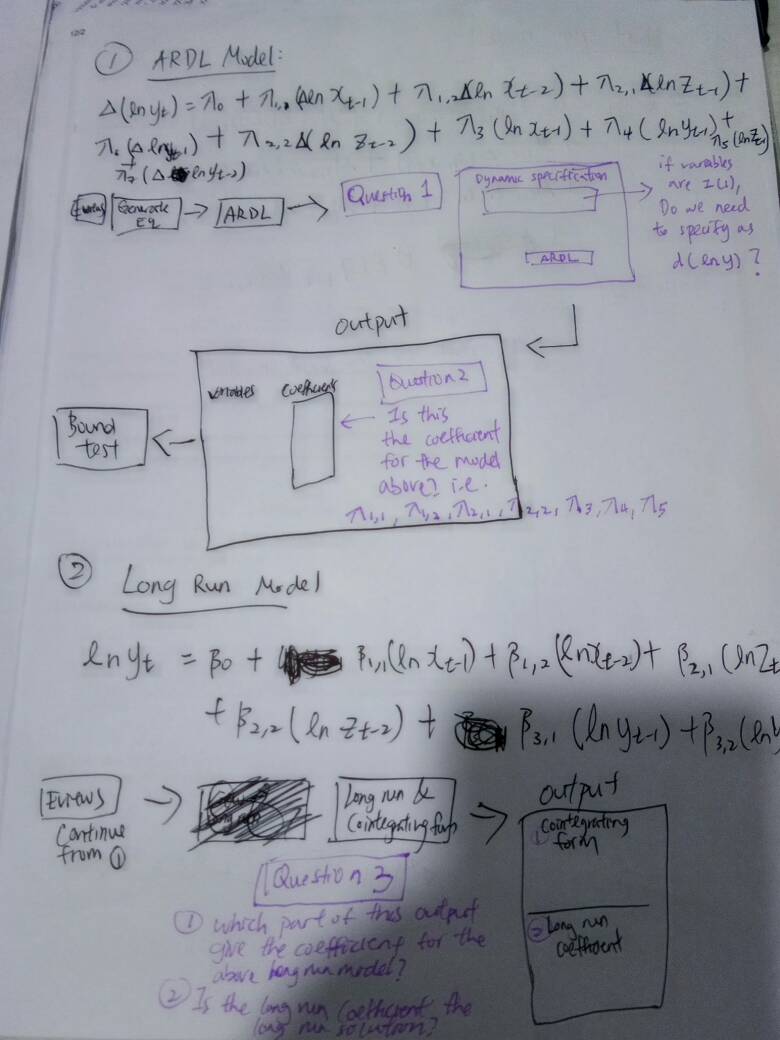 ① ARDL Model:
Δ(ln yt) = π0 + π1,1 (Δln xt-1) + π1,2 Δ(ln xt-2) + π2,1 Δ(ln Zt-1) +
π6 (Δ ln yt-1) + π2,2 Δ(ln Zt-2) + π3 (ln xt-1) + π4 (ln yt-1) + π5 (ln Zt-1)
+ π7 (Δ ln yt-2)
Eviews Generate Eq → ARDL → Question 1
Dynamic specification
ARDL
if variables
are I(1),
Do we need
to specify as
d(ln y)?
Output
Variables Coefficients
Question 2
Is this
the coefficient
for the model
above? i.e.
π1,1, π1,2, π2,1, π2,2, π3, π4, π5
Bound
test
② Long Run Model
ln yt = β0 + β1,1 (ln xt-1) + β1,2 (ln xt-2) + β2,1 (ln Zt
+ β2,2 (ln Zt-2) + β3,1 (ln yt-1) + β3,2 (ln y
Eviews
Continue
from ①
Long run &
Cointegrating form
Output
① Cointegrating
form
② Long run
coefficient
Question 3
① which part of this output
give the coefficient for the
above long run model?
② Is the long run coefficient the
long run solution?